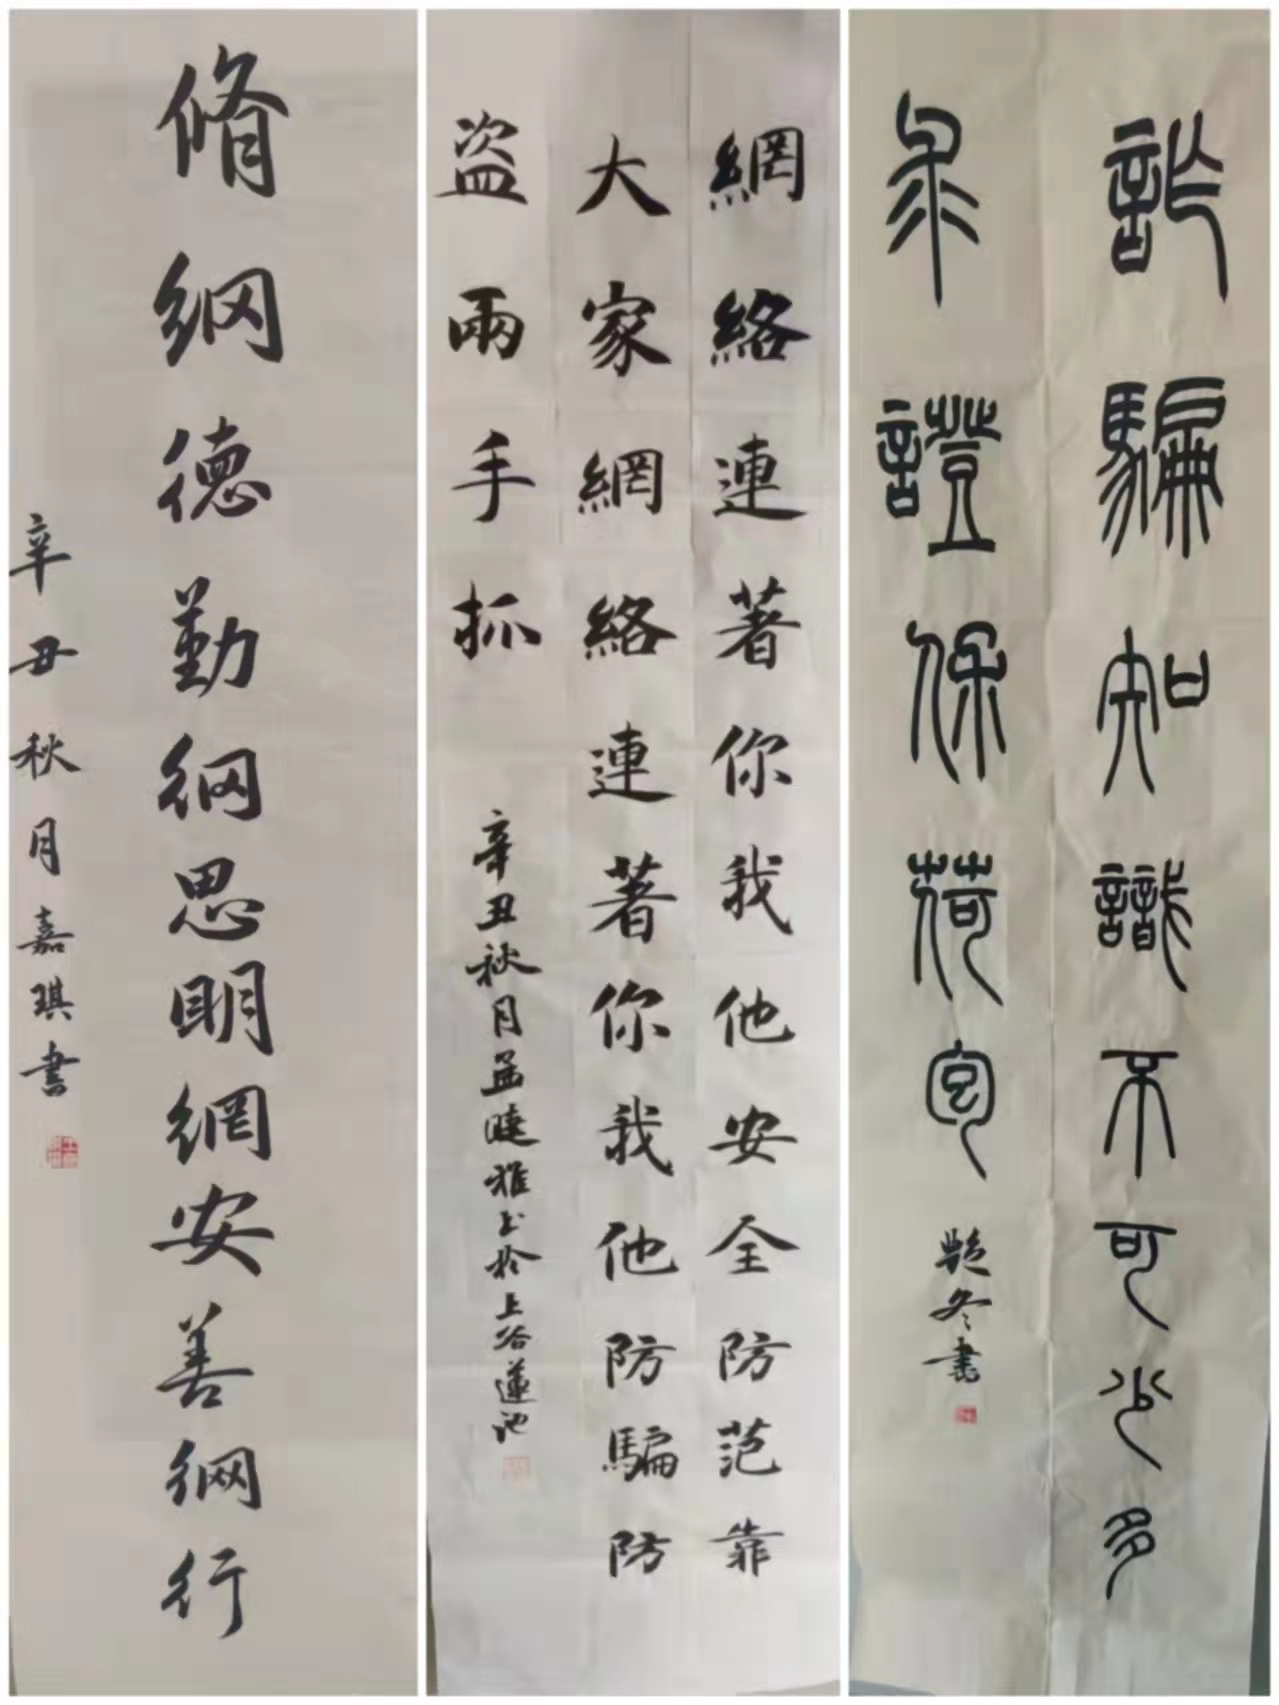 脩網德勤網思明網安善網行
辛丑秋月嘉琪書
網絡連著你我他安全防范靠
大家網絡連著你我他防騙防
盗兩手抓
辛丑秋月孟暁雅书於上谷蓮池
詐騙知識不可少多
求證保荷包
艷冬書